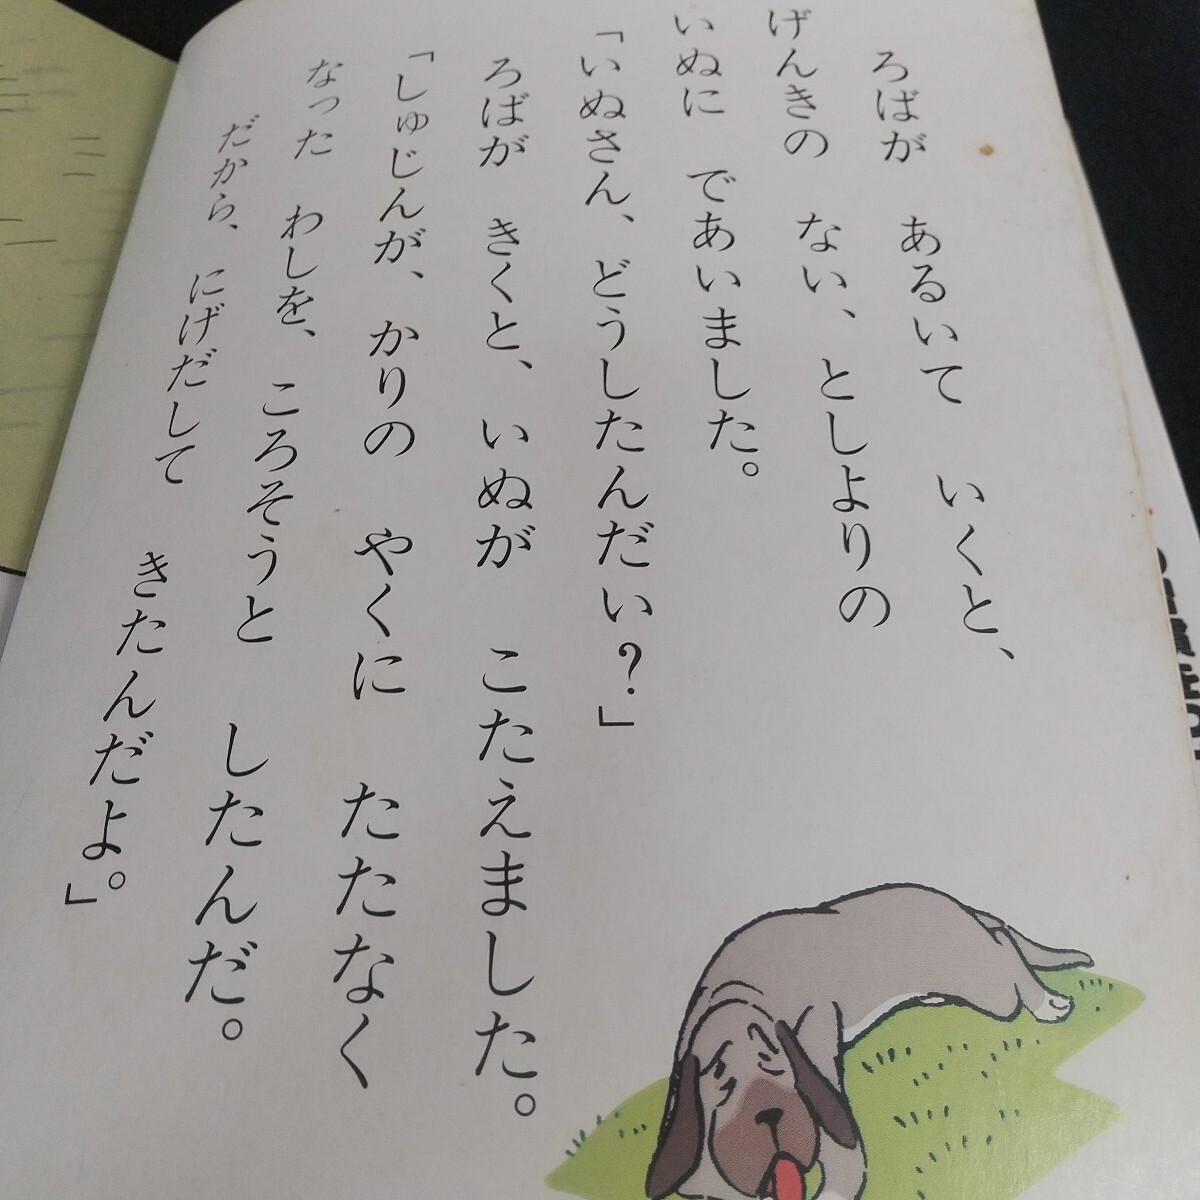 ろばが　あるいて　いくと、
げんきの　ない、としよりの
いぬに　であいました。
「いぬさん、どうしたんだい？」
ろばが　きくと、いぬが　こたえました。
「しゅじんが、かりの　やくに　たたなく
なった　わしを、ころそうと　したんだ。
だから、にげだして　きたんだよ。」